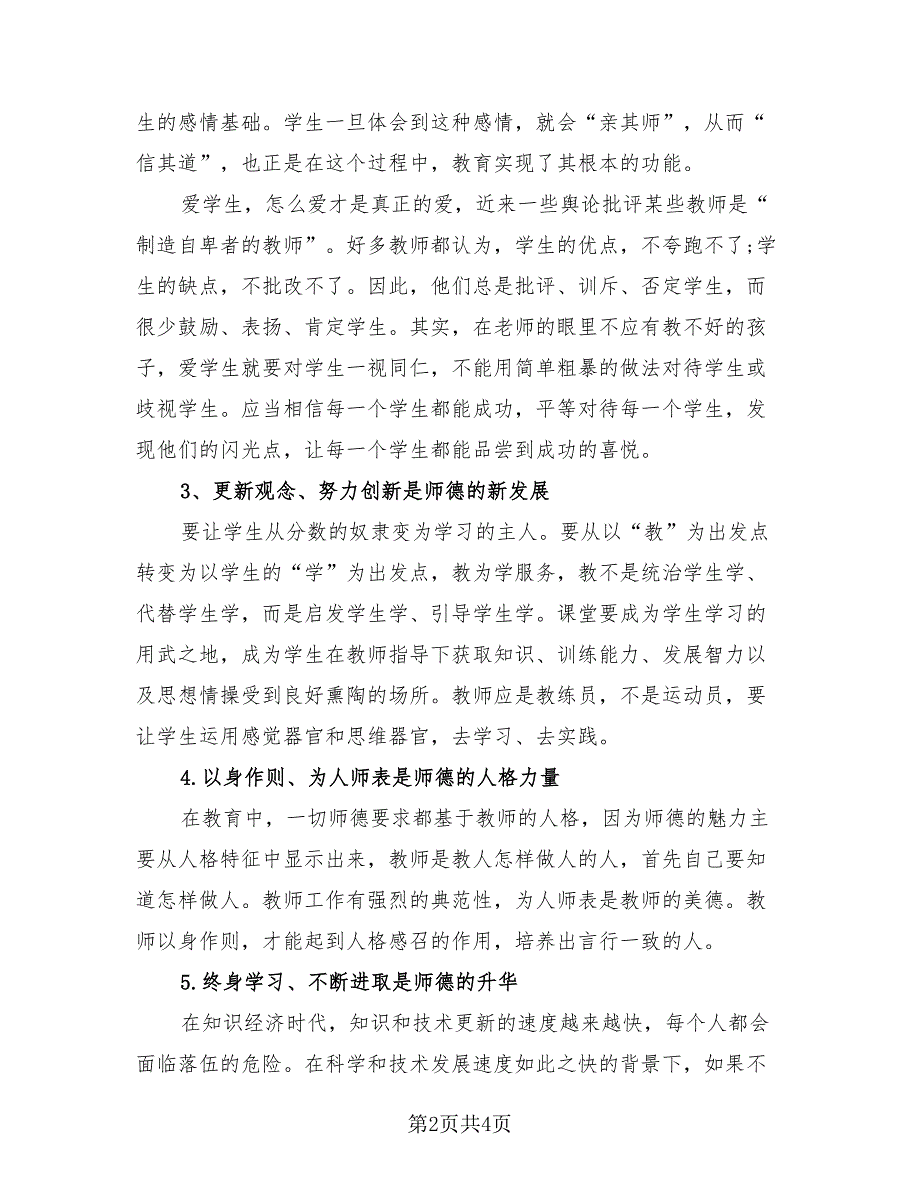 生的感情基础。学生一旦体会到这种感情，就会“亲其师”，从而“
信其道”，也正是在这个过程中，教育实现了其根本的功能。
爱学生，怎么爱才是真正的爱，近来一些舆论批评某些教师是“
制造自卑者的教师”。好多教师都认为，学生的优点，不夸跑不了;学
生的缺点，不批改不了。因此，他们总是批评、训斥、否定学生，而
很少鼓励、表扬、肯定学生。其实，在老师的眼里不应有教不好的孩
子，爱学生就要对学生一视同仁，不能用简单粗暴的做法对待学生或
歧视学生。应当相信每一个学生都能成功，平等对待每一个学生，发
现他们的闪光点，让每一个学生都能品尝到成功的喜悦。
3、更新观念、努力创新是师德的新发展
要让学生从分数的奴隶变为学习的主人。要从以“教”为出发点
转变为以学生的“学”为出发点，教为学服务，教不是统治学生学、
代替学生学，而是启发学生学、引导学生学。课堂要成为学生学习的
用武之地，成为学生在教师指导下获取知识、训练能力、发展智力以
及思想情操受到良好熏陶的场所。教师应是教练员，不是运动员，要
让学生运用感觉器官和思维器官，去学习、去实践。
4.以身作则、为人师表是师德的人格力量
在教育中，一切师德要求都基于教师的人格，因为师德的魅力主
要从人格特征中显示出来，教师是教人怎样做人的人，首先自己要知
道怎样做人。教师工作有强烈的典范性，为人师表是教师的美德。教
师以身作则，才能起到人格感召的作用，培养出言行一致的人。
5.终身学习、不断进取是师德的升华
在知识经济时代，知识和技术更新的速度越来越快，每个人都会
面临落伍的危险。在科学和技术发展速度如此之快的背景下，如果不
第2页共4页